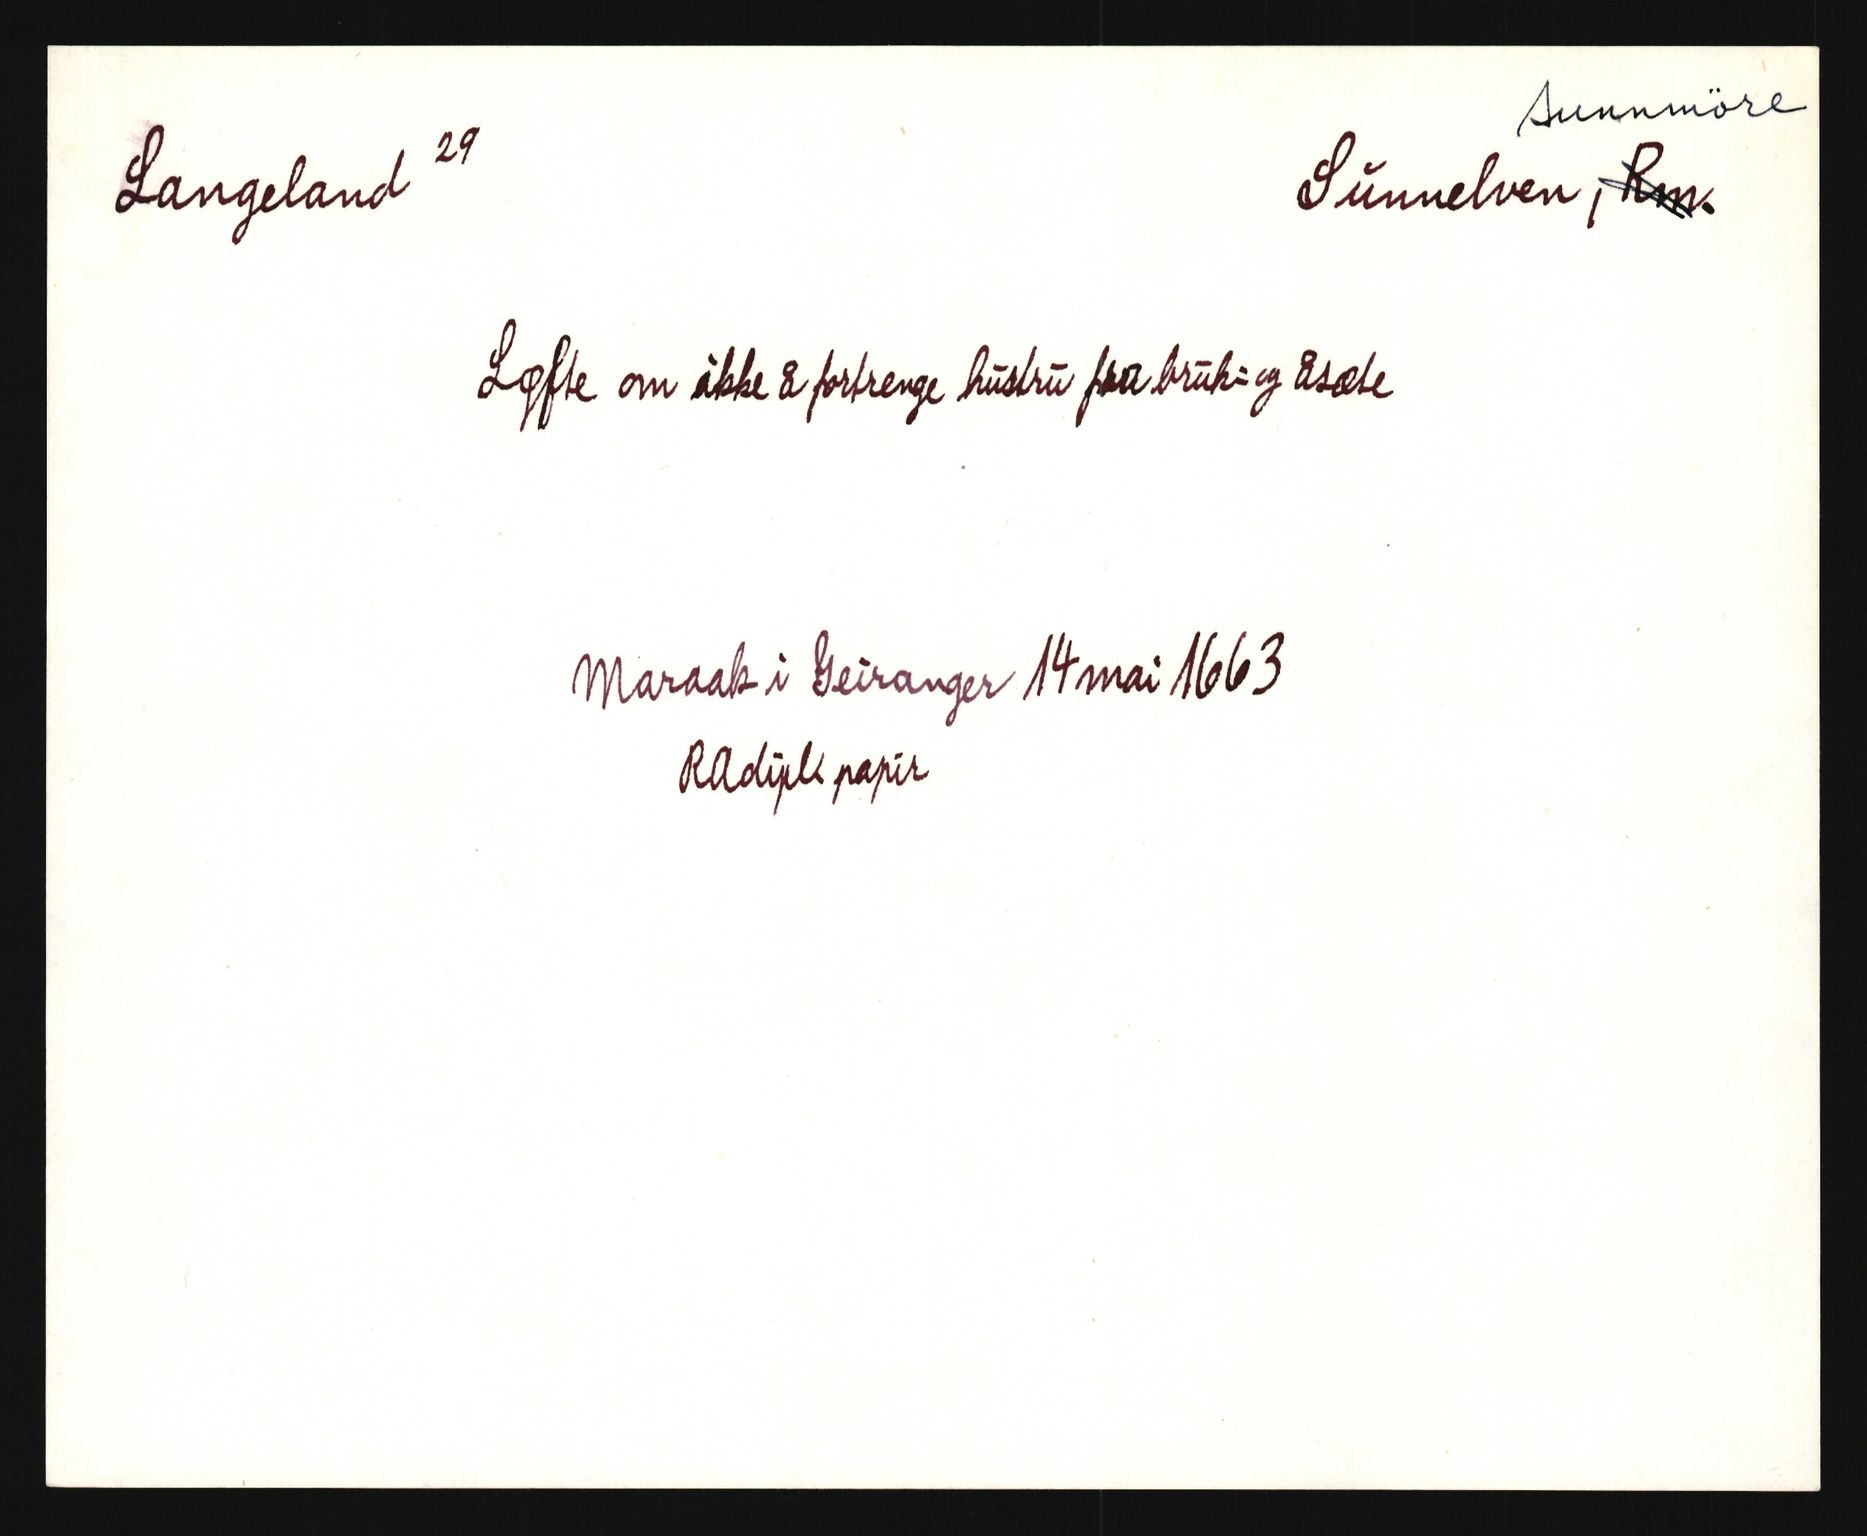 Sunnmöre
Langeland 29 Sunnelven, Rm.
Løfte om ikke å fortrenge hustru fra bruk- og åsæte
Maraak i Geiranger 14 mai 1663
RAdipl. papir